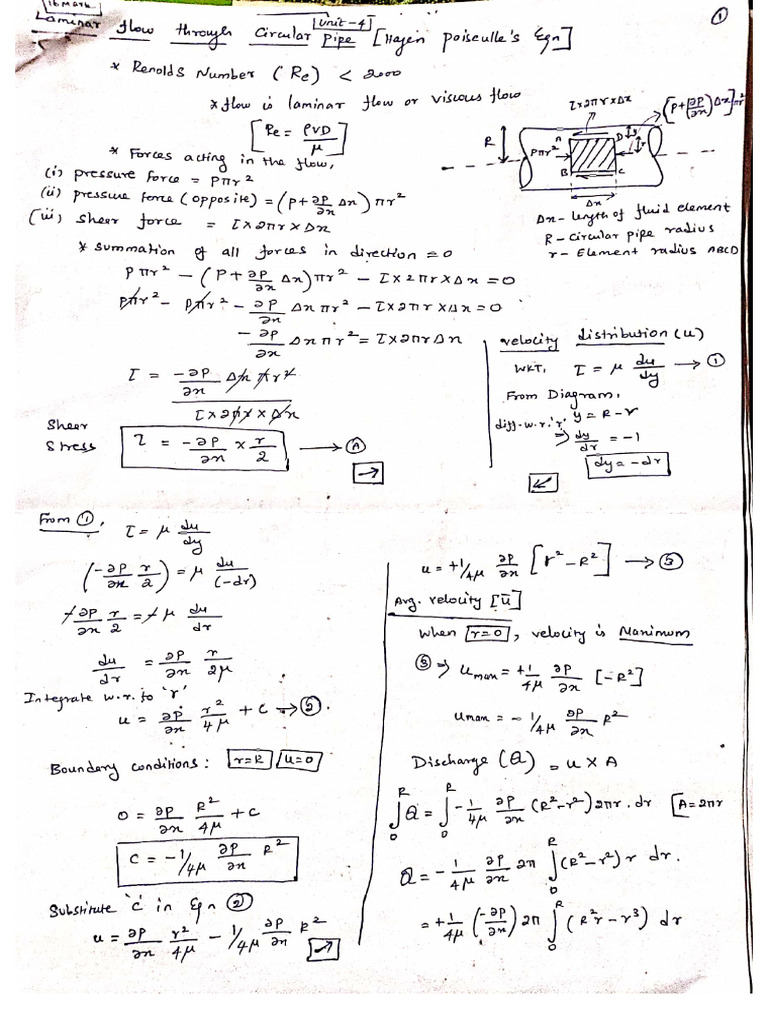 ①
[16 mark]
[unit-4]
Laminar flow through Circular Pipe [Hagen poiseulle's Eqn]
* Renolds Number (Re) < 2000
* flow is laminar flow or viscous flow
[Re = ρVD/μ]
* Forces acting in the flow,
(i) pressure force = Pπr²
(ii) pressure force (opposite) = (P + ∂P/∂x Δx) πr²
(iii) sheer force = τ × 2πr × Δx
* summation of all forces in direction = 0
Pπr² − (P + ∂P/∂x Δx)πr² − τ × 2πr × Δx = 0
Pπr² − Pπr² − ∂P/∂x Δx πr² − τ × 2πr × Δx = 0
− ∂P/∂x Δx πr² = τ × 2πr Δx
τ = −∂P/∂x Δx πr² / τ × 2πr × Δx
Sheer Stress τ = −∂P/∂x × r/2 → Ⓐ
→
τ × 2πr × Δx
(P + (∂P/∂x) Δx) πr²
R
A
D
y
r
Pπr²
B
C
Δx
Δx - length of fluid element
R - Circular pipe radius
r - Element radius ABCD
velocity distribution (u)
WKT, τ = μ du/dy → ①
From Diagram,
y = R − r
diff. w.r. 'r' ⇒ dy/dr = −1
dy = −dr
↙
From ①, τ = μ du/dy
(−∂P/∂x r/2) = μ du/(−dr)
−∂P/∂x r/2 = −μ du/dr
du/dr = ∂P/∂x r/2μ
Integrate w.r. to 'r'
u = ∂P/∂x r²/4μ + C → ②.
Boundary conditions: r=R u=0
0 = ∂P/∂x R²/4μ + C
C = −1/4μ ∂P/∂x R²
Substitute 'c' in Eqn ②
u = ∂P/∂x r²/4μ − 1/4μ ∂P/∂x R²
↗
u = +1/4μ ∂P/∂x [r² − R²] → ③
Avg. velocity [ū]
When r=0, velocity is Maximum
③ ⇒ umax = +1/4μ ∂P/∂x [−R²]
umax = − 1/4μ ∂P/∂x R²
Discharge (Q) = u × A
∫₀ᴿ Q = ∫₀ᴿ −1/4μ ∂P/∂x (R²−r²) 2πr. dr [A=2πr
Q = −1/4μ ∂P/∂x 2π ∫₀ᴿ (R²−r²) r dr.
= +1/4μ (−∂P/∂x) 2π ∫₀ᴿ (R²r − r³) dr